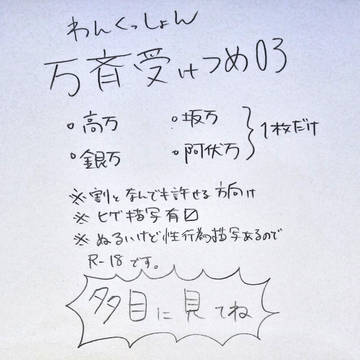 わんくっしょん
万斉受けつめ03
。高万 。坂万
。銀万 。阿伏万 }1枚だけ
※割となんでも許せる方向け
※ヒゲ描写有〼
※ぬるいけど性行為描写あるので
R-18です。
多目に見てね